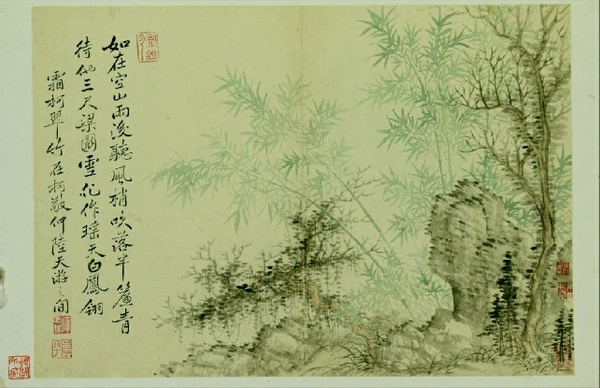 如在空山雨後聽風梢吹落半簾青
待他三尺梁園雪化作瑤天白鳳翎
霜柯翠竹在柯敬仲陸天游之間